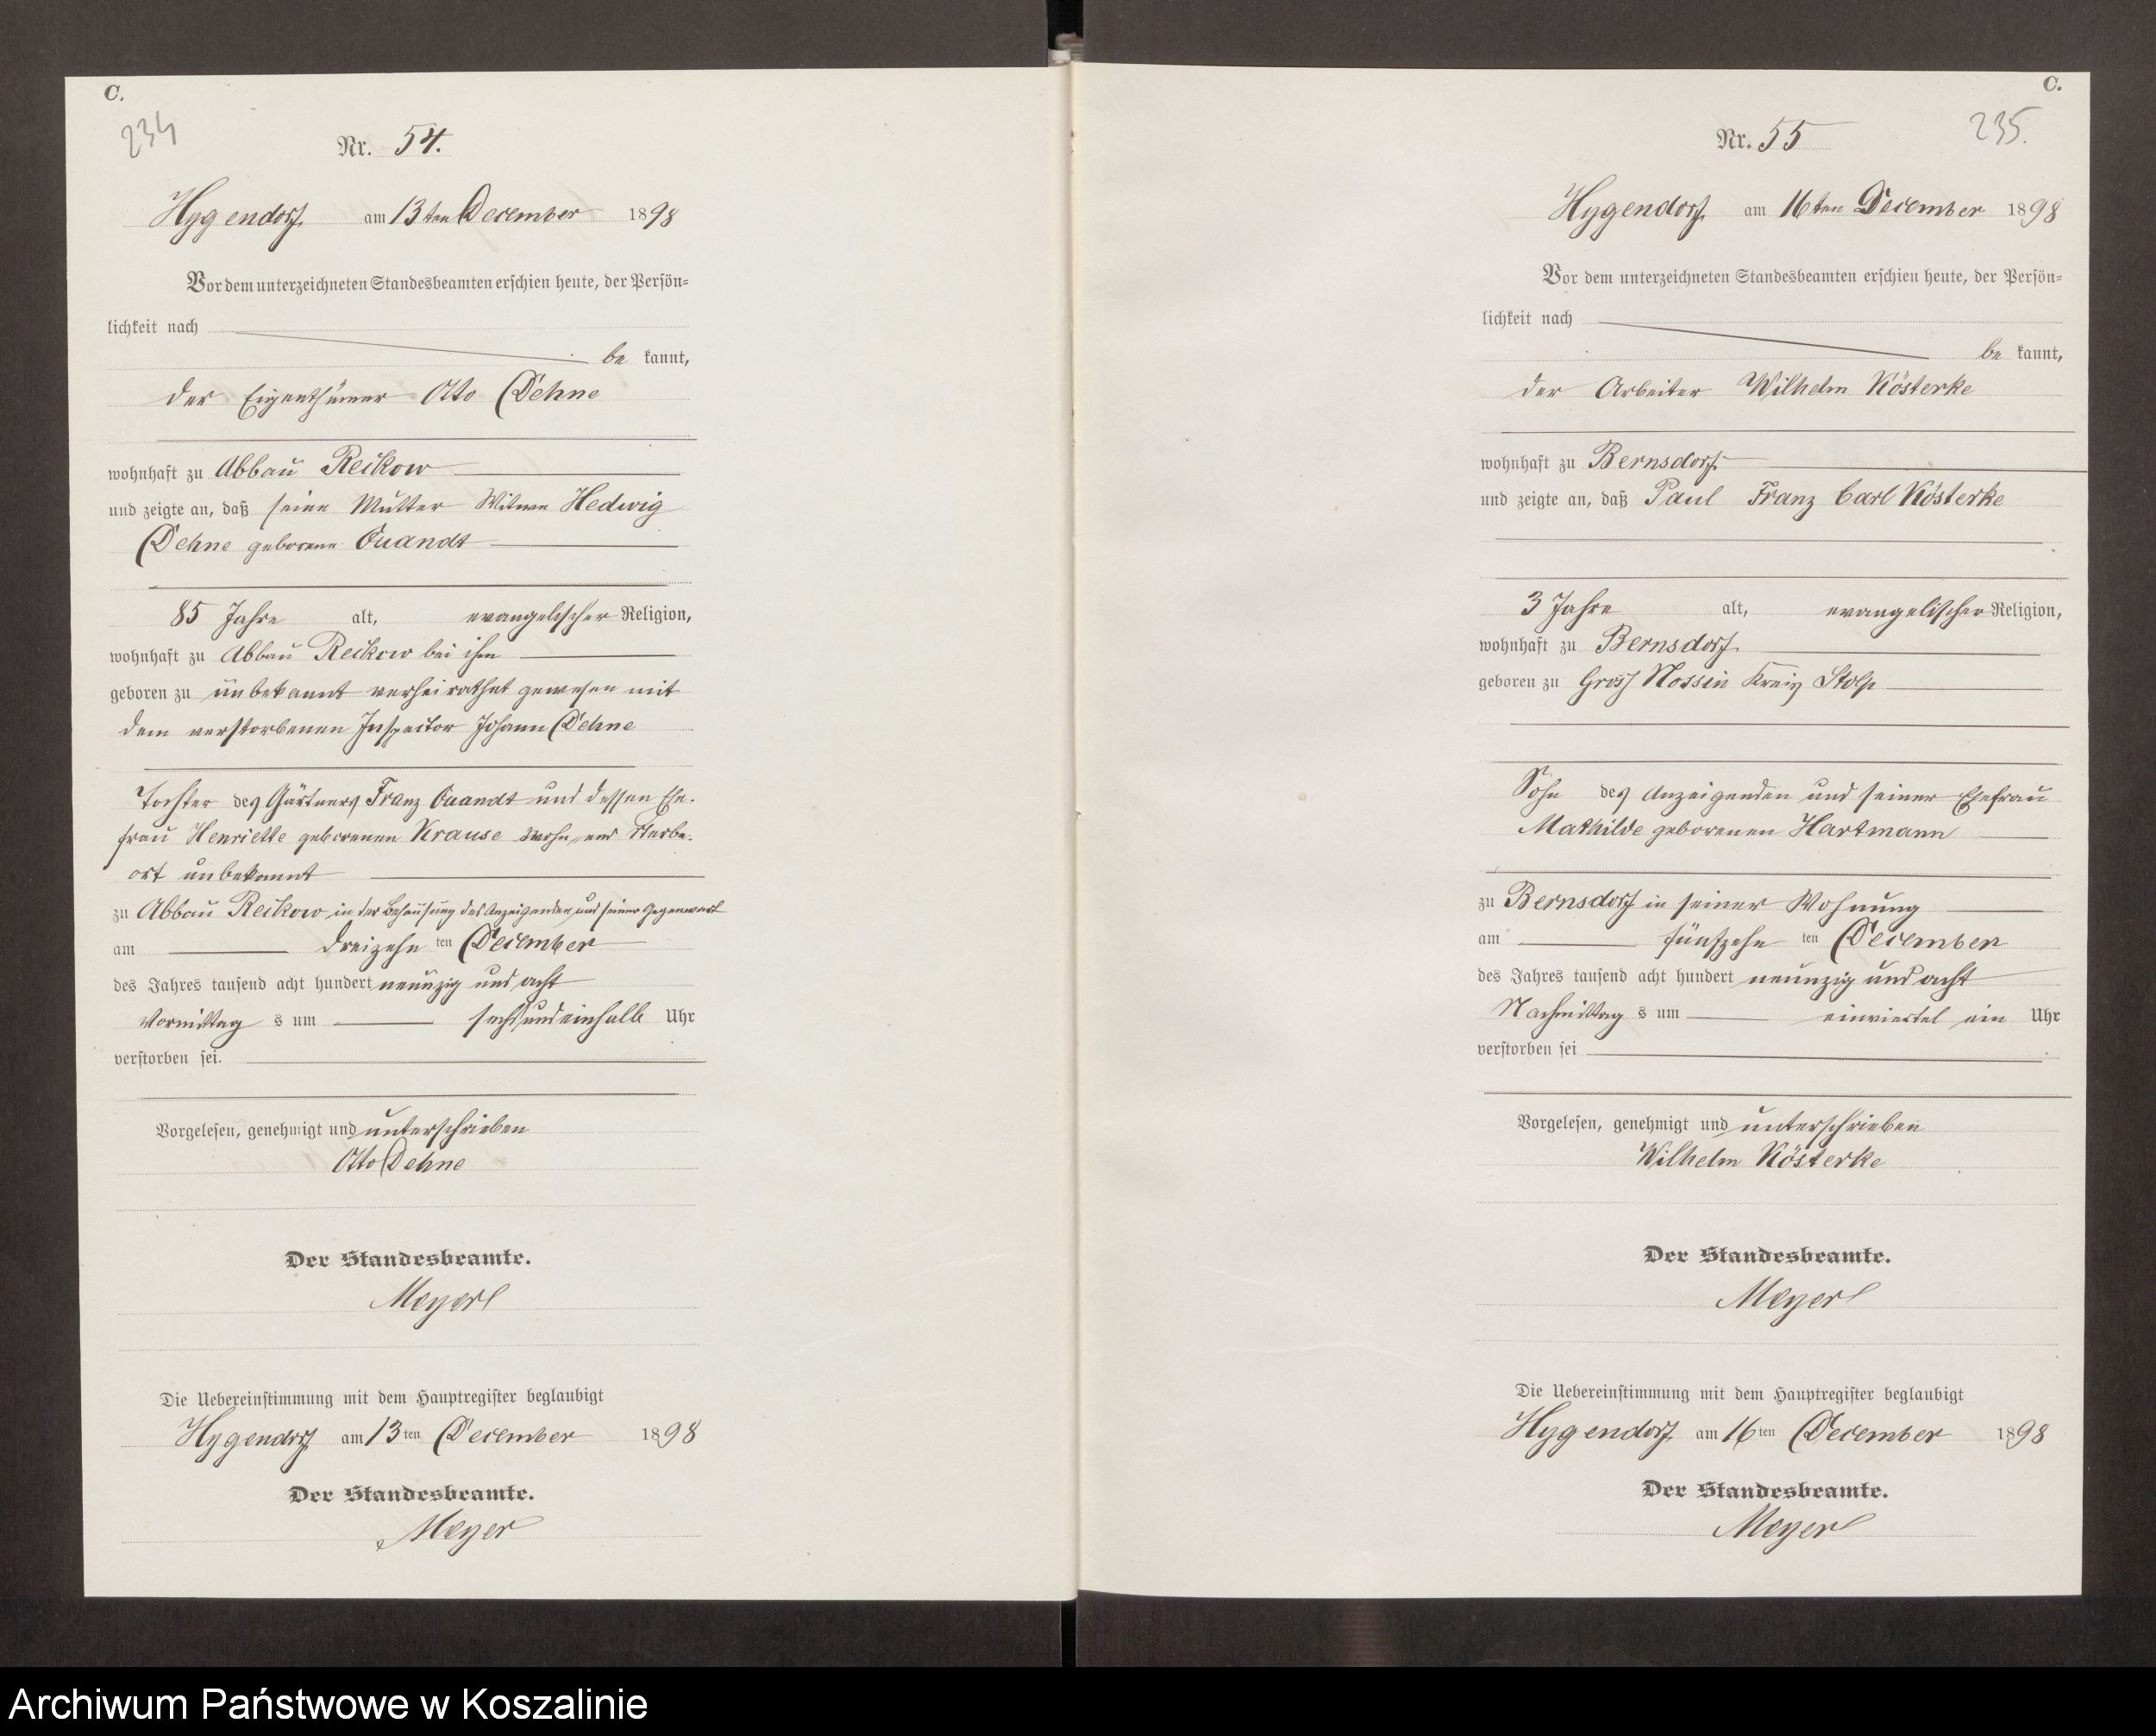 C.
234
Nr. 54.
Hygendorf am 13ten December 1898
Vor dem unterzeichneten Standesbeamten erschien heute, der Persön-
lichkeit nach
be kannt,
der Eigenthümer Otto Dehne
wohnhaft zu Abbau Reckow
und zeigte an, daß seine Mutter Witwe Hedwig
Dehne geborene Quandt
85 Jahre alt, evangelischer Religion,
wohnhaft zu Abbau Reckow bei ihm
geboren zu unbekannt verheirathet gewesen mit
dem verstorbenen Inspector Johann Dehne
Tochter des Gärtners Franz Quandt und dessen Ehe-
frau Henriette geborenen Krause Wohn und Sterbe-
ort unbekannt
zu Abbau Reckow in der Behausung des Anzeigenden und seiner Gegenwart
am dreizehn ten December
des Jahres tausend acht hundert neunzig und acht
Vormittag s um sechsundeinhalb Uhr
verstorben sei.
Vorgelesen, genehmigt und unterschrieben
Otto Dehne
Der Standesbeamte.
Meyer
Die Uebereinstimmung mit dem Hauptregister beglaubigt
Hygendorf am 13 ten December 1898
Der Standesbeamte.
Meyer
C.
235.
Nr. 55
Hygendorf am 16ten December 1898
Vor dem unterzeichneten Standesbeamten erschien heute, der Persön-
lichkeit nach
be kannt,
der Arbeiter Wilhelm Kösterke
wohnhaft zu Bernsdorf
und zeigte an, daß Paul Franz Carl Kösterke
3 Jahre alt, evangelischer Religion,
wohnhaft zu Bernsdorf
geboren zu Gross Nossin Kreis Stolp
Sohn des Anzeigenden und seiner Ehefrau
Mathilde geborenen Hartmann
zu Bernsdorf in seiner Wohnung
am fünfzehn ten December
des Jahres tausend acht hundert neunzig und acht
Nachmittag s um einviertel ein Uhr
verstorben sei
Vorgelesen, genehmigt und unterschrieben
Wilhelm Kösterke
Der Standesbeamte.
Meyer
Die Uebereinstimmung mit dem Hauptregister beglaubigt
Hygendorf am 16 ten December 1898
Der Standesbeamte.
Meyer
Archiwum Państwowe w Koszalinie